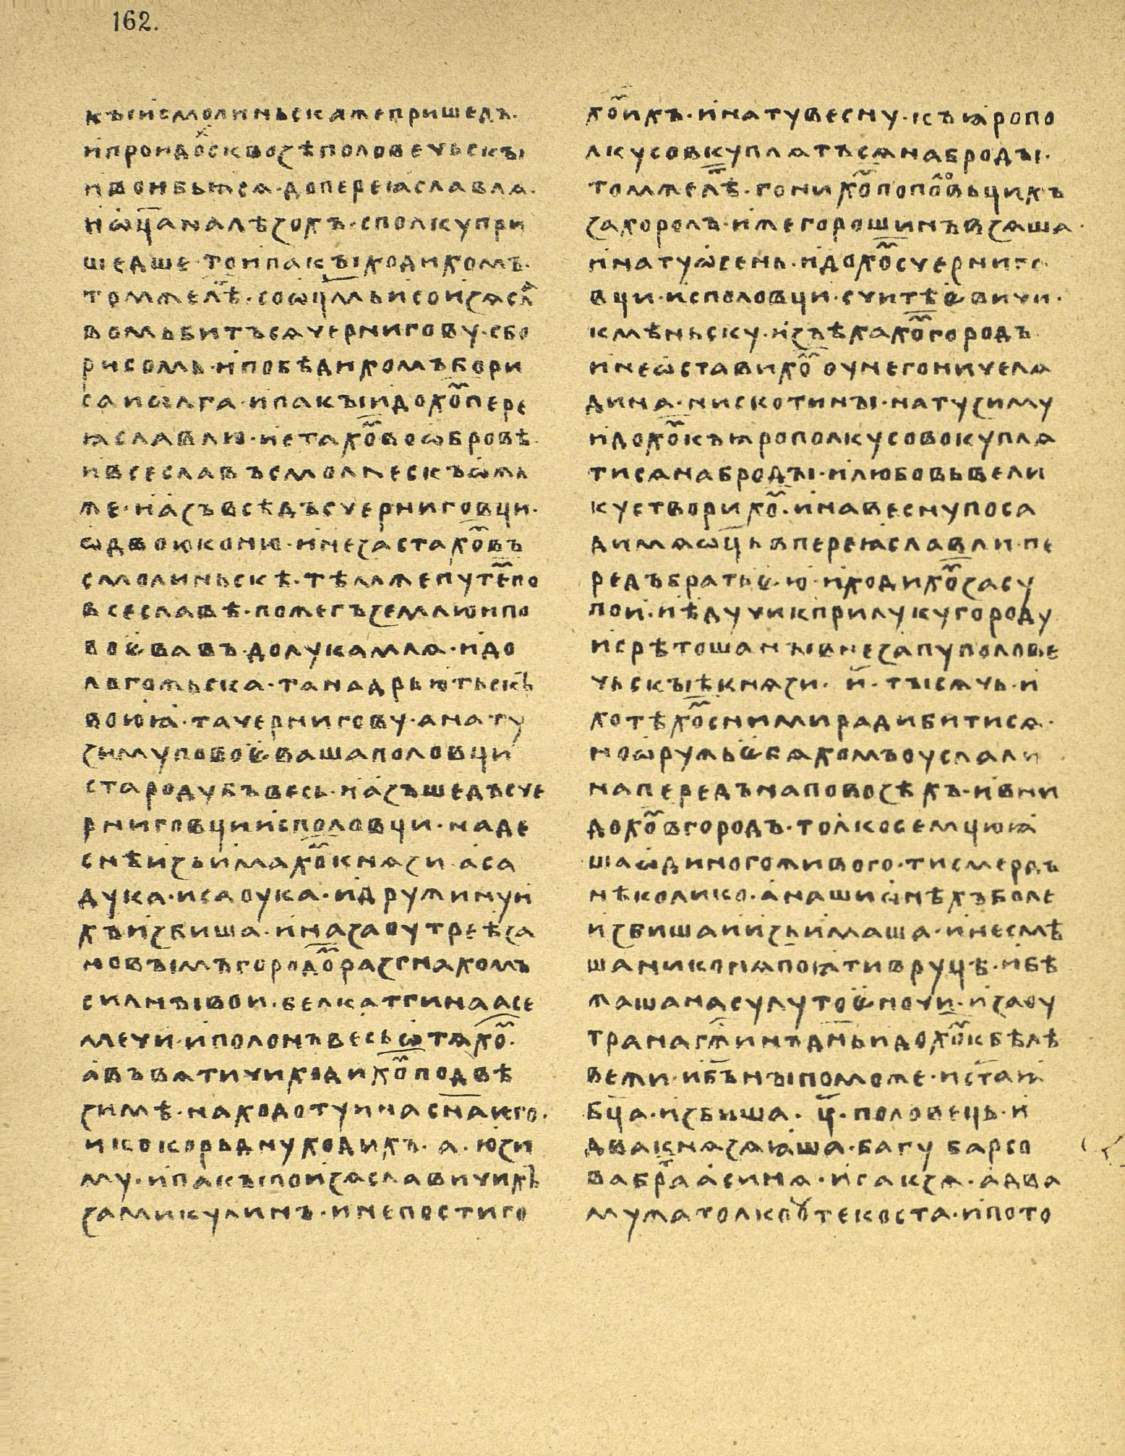 162.
къ и смолиньска же пришедъ·
и проидох сквозѣ половечьскыı
и вои бьюся·до переꙗславлѧ·
и ѡц҃а налѣзохъ·с полку при
шедше·то и пакы ходихомъ·
том же лѣ·со ѡц҃мь и со изѧсла
вомь битъсѧ чернигову·с бо
рисомь·и побѣдихомъ бори
са и ѡлга·и пакы идохом пере
ꙗславлю·и стахом во ѡбровѣ
и всеславъ смолнескъ ѡжь
же·и азъ всѣдъ с черниговци·
ѡ двою коню·и не застахом въ
смолиньскѣ·тѣм же путем по
всеславѣ·пожегъ землю и по
воевавъ·до лукамлѧ·и до
логожьска·та на дрьютьскъ
воюꙗ·та чернигову·а на ту
зиму повоеваша половци
стародубъ весь·и азъ шедъ с че
рниговци и с половци·на де
снѣ изьимахом кнѧзи аса
дука·и саука·и дружину и
хъ избиша·и на заоутреѣ за
новымъ городом разгнахомъ
силныı вои·белкатгина а се
мечи·и полонъ весь ѡтѧхом·
а въ вѧтичи ходихом по двѣ
зимѣ·на ходоту и на сн҃а его·
и ко корьдну ходихъ·а·ю зи
му·и пакы по изѧславичихъ
за микулинъ·и не постиго
хом ихъ·и на ту весну·къ ꙗропо
лку совкуплѧтъсѧ на бродыı·
том же лѣ·гонихом по половьцихъ
за хоролъ·иже горошинъ взѧша·
и на ту ѡсень·идохом с черниго
вци·и с половци·с читѣевичи·
к мѣньску·изъѣхахом городъ
и не ѡставихом оу него ни челѧ
дина·ни скотины·на ту зиму
идохом къ ꙗрополку совокуплѧ
тисѧ на бродыı·и любовь вели
ку створихом·и на весну поса
ди мѧ ѡц҃ь в переꙗславли·пе
редъ братьею·и ходихом за су
пои·и ѣдучи к прилуку городу
и срѣтоша ны внезапу полове
чьскыѣ кнѧзи·и·тысѧчь·и
хотѣхом с ними ради битисѧ·
но ѡружье бѧхомъ оуслали
напередъ на повозѣхъ·и вни
дохом в городъ·толко семцю ꙗ
ша ѡдиного живого·ти смердъ
нѣколико·а наши ѡнѣхъ боле
избиша и изьимаша·и не смѣ
ша ни конѧ поꙗти в руцѣ·и бѣ
жаша на сулу тое ночи·и заоу
тра на гж҃инъ дн҃ь идохом к бѣлѣ
вежи·и бъ҃ ны поможе·и ст҃аꙗ
бц҃а·избиша·ц҃·половець·и
два кнѧзѧ ꙗша·багу барсо
ва бра асинѧ·и сакзѧ·а два
мужа толко оутекоста·и пото